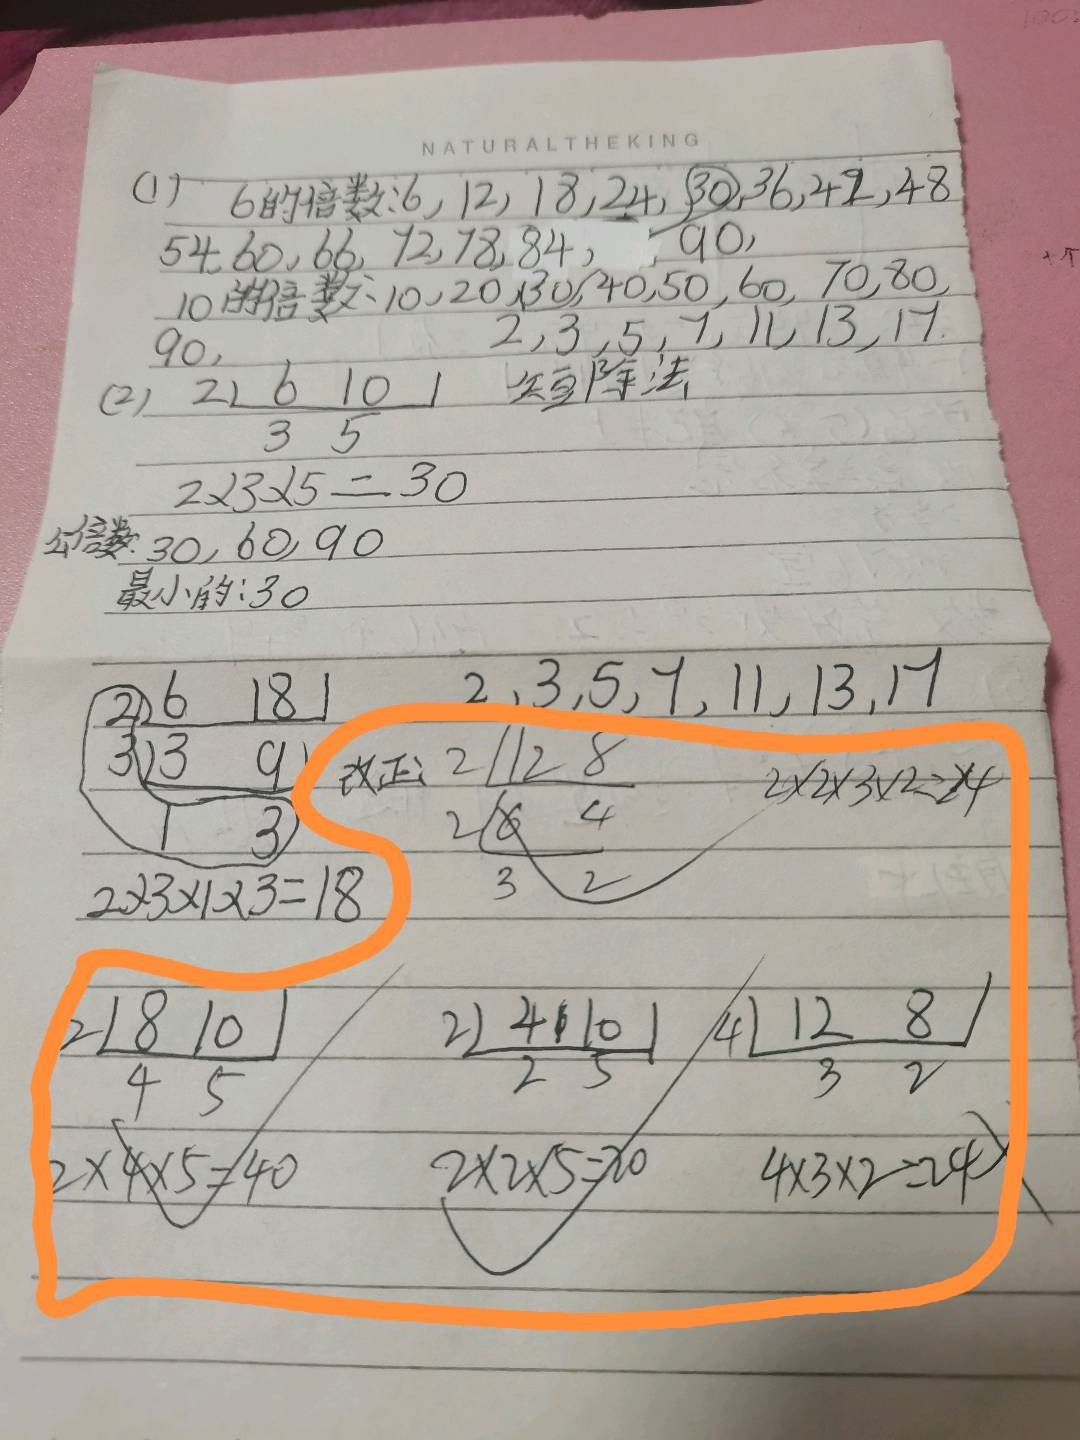 NATURALTHEKING
(1) 6的倍数:6, 12, 18, 24, 30, 36, 42, 48
54, 60, 66, 72, 78, 84, 90,
10的倍数: 10, 20, 30, 40, 50, 60, 70, 80,
90, 2, 3, 5, 7, 11, 13, 17.
(2) 2 6 10 短除法
3 5
2×3×5=30
公倍数: 30, 60, 90
最小的:30
2 6 18 2, 3, 5, 7, 11, 13, 17
3 3 9 改正: 2 12 8 2×2×3×2=24
1 3 2 6 4
2×3×1×3=18 3 2
2 8 10 2 4 10 4 12 8
4 5 2 5 3 2
2×4×5=40 2×2×5=20 4×3×2=24